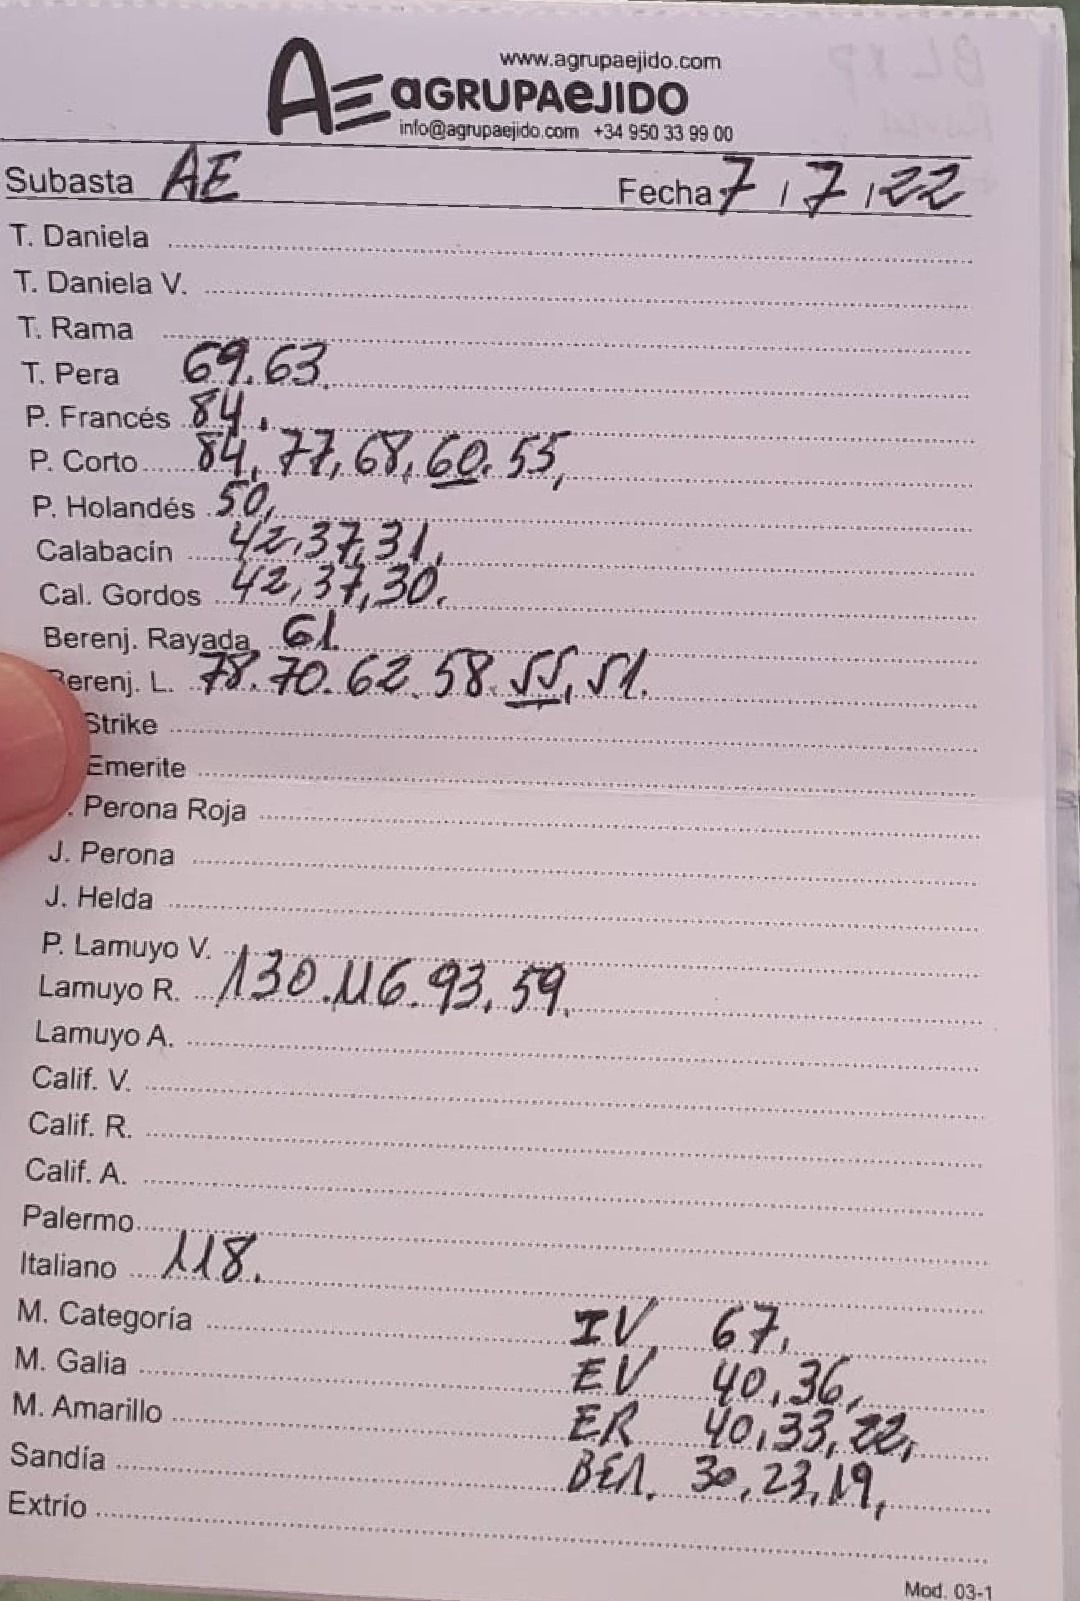 www.agrupaejido.com
AE aGRUPAeJIDO
info@agrupaejido.com +34 950 33 99 00
Subasta AE Fecha 7/7/22
T. Daniela
T. Daniela V.
T. Rama
T. Pera 69.63.
P. Francés 84.
P. Corto 84, 77, 68, 60. 55,
P. Holandés 50,
Calabacín 42,37,31,
Cal. Gordos 42,37,30.
Berenj. Rayada 61.
Berenj. L. 78.70.62.58.55,51.
Strike
Emerite
. Perona Roja
J. Perona
J. Helda
P. Lamuyo V.
Lamuyo R. 130.116.93.59.
Lamuyo A.
Calif. V.
Calif. R.
Calif. A.
Palermo
Italiano 118.
M. Categoría IV 67,
M. Galia EV 40,36,
M. Amarillo ER 40,33,22,
Sandía BER. 30,23,19,
Extrío
Mod. 03-1